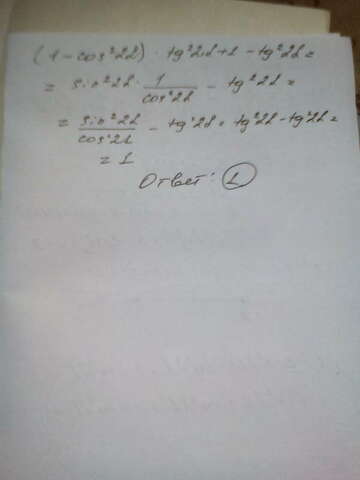 (1 - cos²2α) · tg²2α + 1 - tg²2α =
= sin²2α · 1/cos²2α - tg²2α =
= sin²2α/cos²2α - tg²2α = tg²2α - tg²2α =
= 1
Ответ: 1